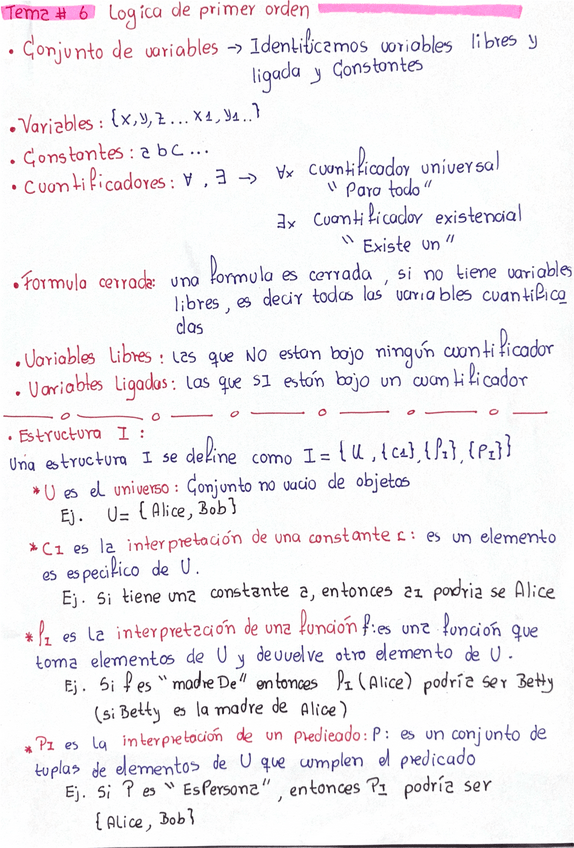 Tema # 6 Logica de primer orden
• Conjunto de variables → Identificamos variables libres y
ligada y Constantes
• Variables: {x,y,z... x1, y1..}
• Constantes: a b c ...
• Cuantificadores: ∀, ∃ → ∀x cuantificador universal
"Para todo"
∃x Cuantificador existencial
"Existe un"
• Formula cerrada: una formula es cerrada, si no tiene variables
libres, es decir todas las variables cuantifica
das
• Variables Libres: Las que NO estan bajo ningún cuantificador
• Variables Ligadas: Las que SI están bajo un cuantificador
• Estructura I:
Una estructura I se define como I = {U, {CI}, {fI}, {PI}}
* U es el universo: Conjunto no vacio de objetos
Ej. U= {Alice, Bob}
* CI es la interpretación de una constante c: es un elemento
es especifico de U.
Ej. Si tiene una constante a, entonces aI podria se Alice
* fI es la interpretación de una función f: es una función que
toma elementos de U y devuelve otro elemento de U.
Ej. Si f es "madreDe" entonces fI (Alice) podría ser Betty
(si Betty es la madre de Alice)
* PI es la interpretación de un predicado: P: es un conjunto de
tuplas de elementos de U que cumplen el predicado
Ej. Si P es "EsPersona", entonces PI podría ser
{Alice, Bob}